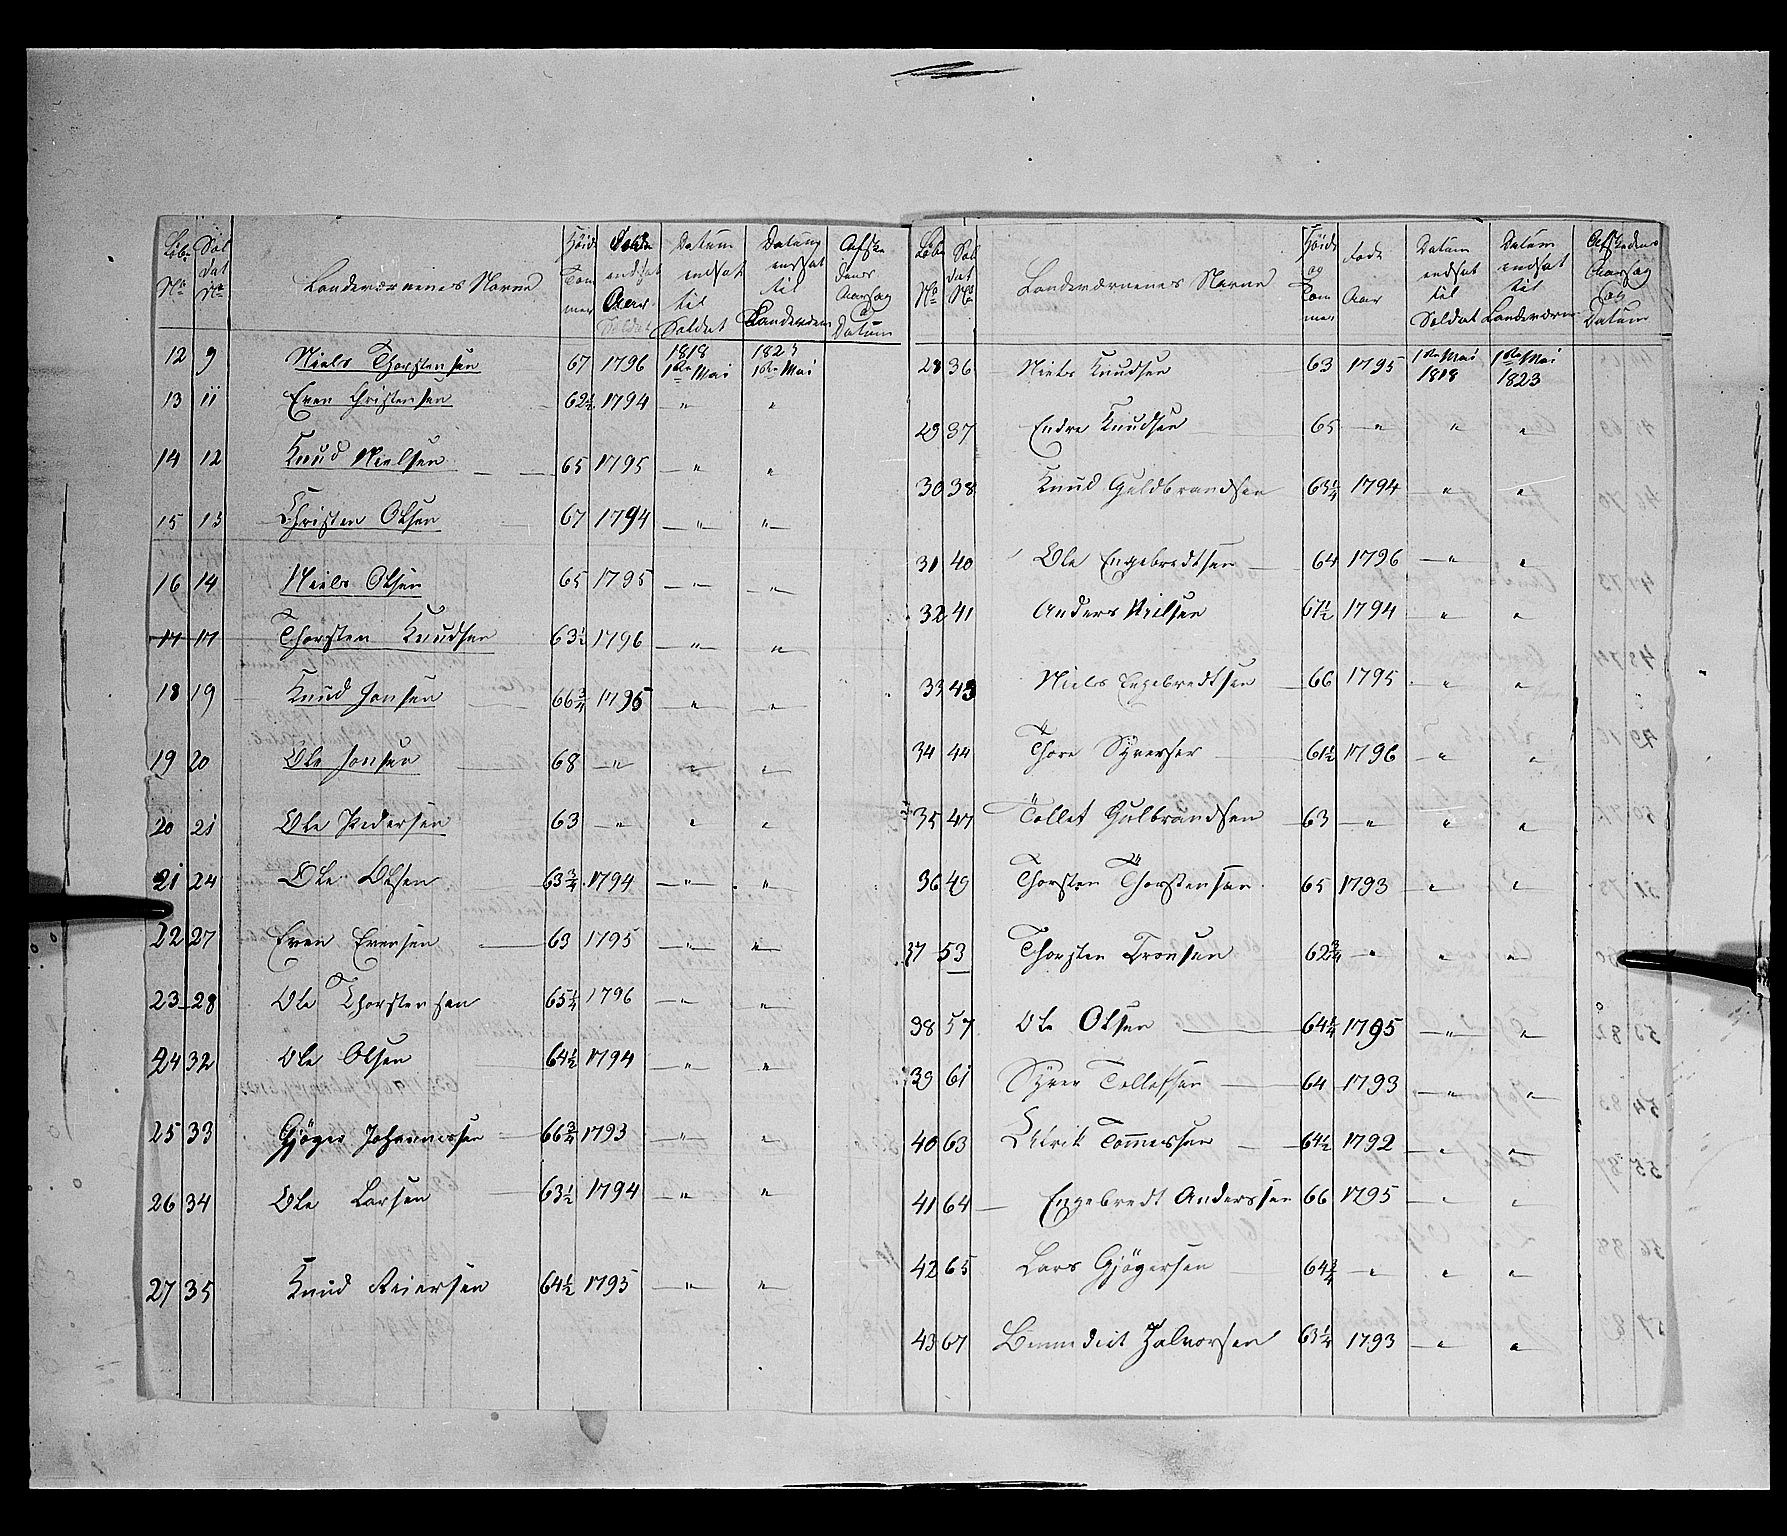 Løbe No Sol dat No Landeværnenes Navne Høide Tom mer Aar Datum endsat til Soldat Datum enssat til Landevern Afske denes Aarsag og Datum
12 9 Niels Thorstensen 67 1796 1818 1ste Mai 1823 1ste Mai
13 11 Even Christensen 62½ 1794 " "
14 12 Knud Nielsen 65 1795 " "
15 13 Christen Olsen 67 1794 " "
16 14 Niels Olsen 65 1795 " "
17 17 Thorsten Knudsen 63½ 1796 " "
18 19 Knud Jonsen 66¾ 1795 " "
19 20 Ole Jonsen 68 " " "
20 21 Ole Pedersen 63 " " "
21 24 Ole Olsen 63¾ 1794 " "
22 27 Even Evensen 63 1795 " "
23 28 Ole Thorstensen 65¼ 1796 " "
24 32 Ole Olsen 64½ 1794 " "
25 33 Gjøger Johannessen 66¾ 1793 " "
26 34 Ole Larsen 63½ 1794 " "
27 35 Knud Reiersen 64½ 1795 " "
Løbe No Sol dat No Landeværnenes Navne Høide og Tom mer Født Aar Datum endsat til Soldat Datum endsat til Landeværn Afskedens Aarsag og Datum
28 36 Niels Knudsen 63 1795 1ste Mai 1818 1ste Mai 1823
29 37 Endre Knudsen 65 " " "
30 38 Knud Guldbrandsen 65¼ 1794 " "
31 40 Ole Engebredtsen 64 1796 " "
32 41 Anders Nielsen 67½ 1794 " "
33 43 Niels Engebredtsen 66 1795 " "
34 44 Thore Syversen 61½ 1796 " "
35 47 Tollef Gulbrandsen 63 " " "
36 49 Thorsten Thorstensen 65 1793 " "
37 53 Thorsten Tronsen 62¾ " " "
38 57 Ole Olsen 64¼ 1795 " "
39 61 Syver Tollefsen 64 1793 " "
40 63 Ulrik Tommessen 64½ 1792 " "
41 64 Engebredt Anderssen 66 1795 " "
42 65 Lars Gjøgersen 64¾ " " "
43 67 Benedict Halvorsen 63¼ 1793 " "